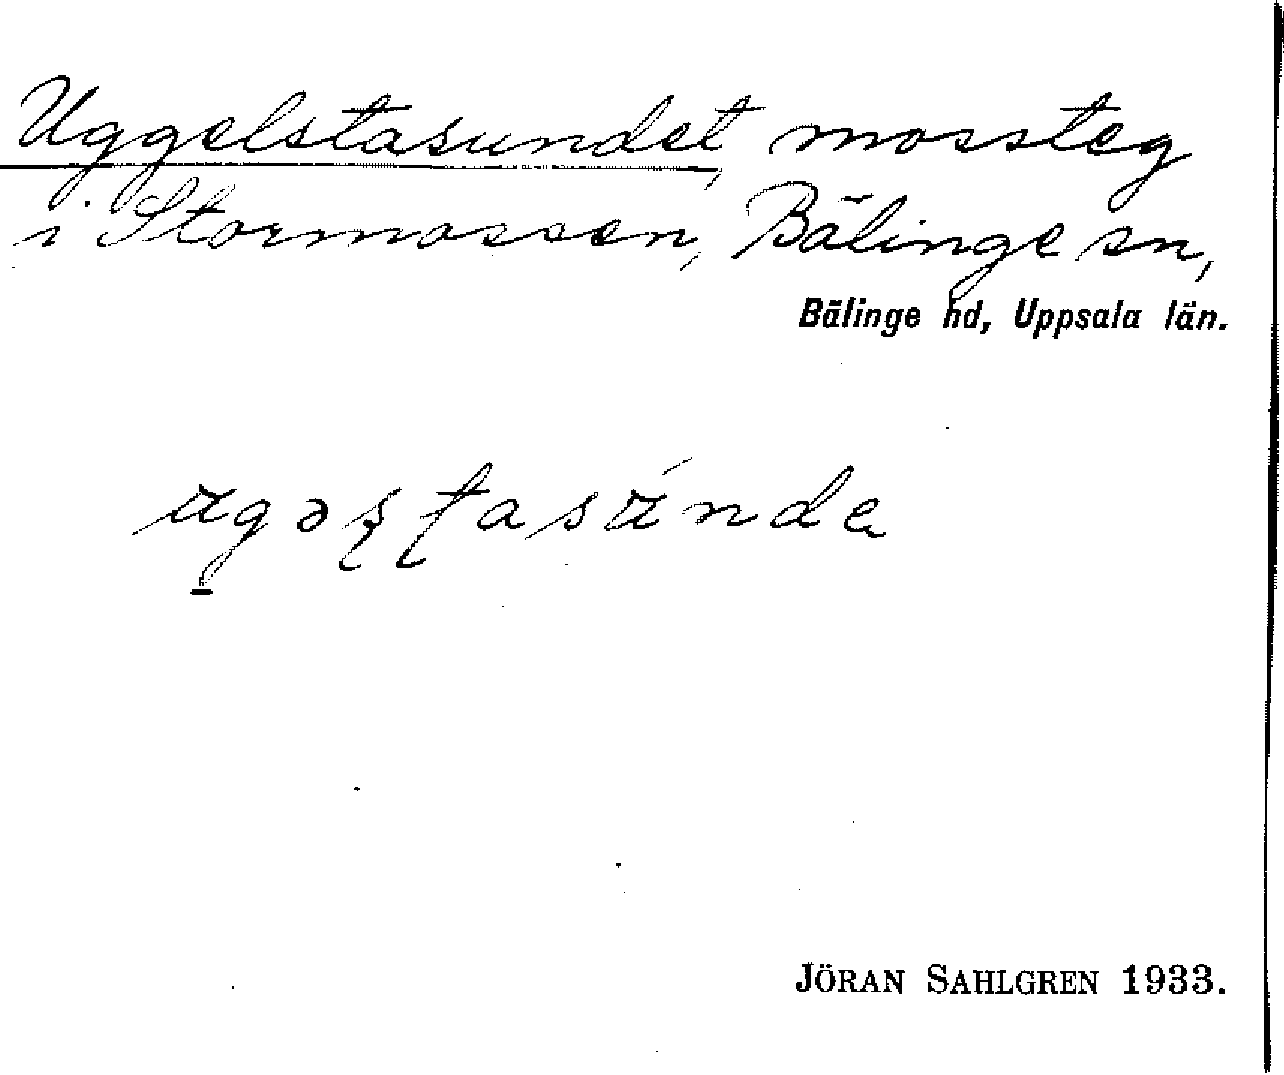 Uggelstasundet, mossteg
i Stormossen, Bälinge sn,
Bälinge hd, Uppsala län.
ugəʂʈasúnda
JÖRAN SAHLGREN 1933.